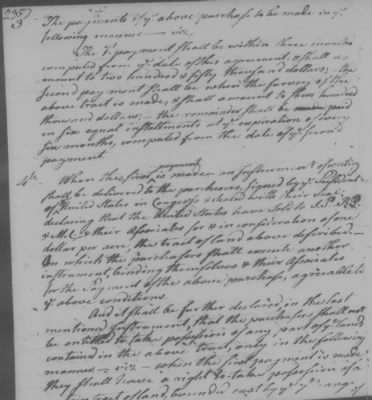 235
3
The payments of ye above purchase to be made in ye
following manner — viz.
The 1st payment shall be within three months
computed from ye date of this agreement, & shall a-
mount to two hundred & fifty thousand dollars; — the
second payment shall be when the survey of the
above tract is made, & shall amount to hundred
thousand dollars; — the remainder shall be paid
in six equal installments at ye expiration of every
six months, computed from the date of ye second
payment
4th. When the first payment is made an Instrument of writing
shall be delivered to the purchasers, signed by ye President
of United States in Congress & sealed with their Seal;
declaring that the United States have sold to
& their Associates for & in consideration of one
dollar per acre the tract of land above described —
On which the purchasers shall execute another
instrument, binding themselves & their Associates
for the Payment of the above purchase, agreeable to
ye above conditions.
And it shall be further declared in the last
mentioned Instrument, that the purchasers shall not
be entitled to take possession of any part of ye land
contained in the above tract, only in the following
manner — viz — when the first payment is made
they shall have a right to take possession of a
tract of land, bounded east by ye 7th range of